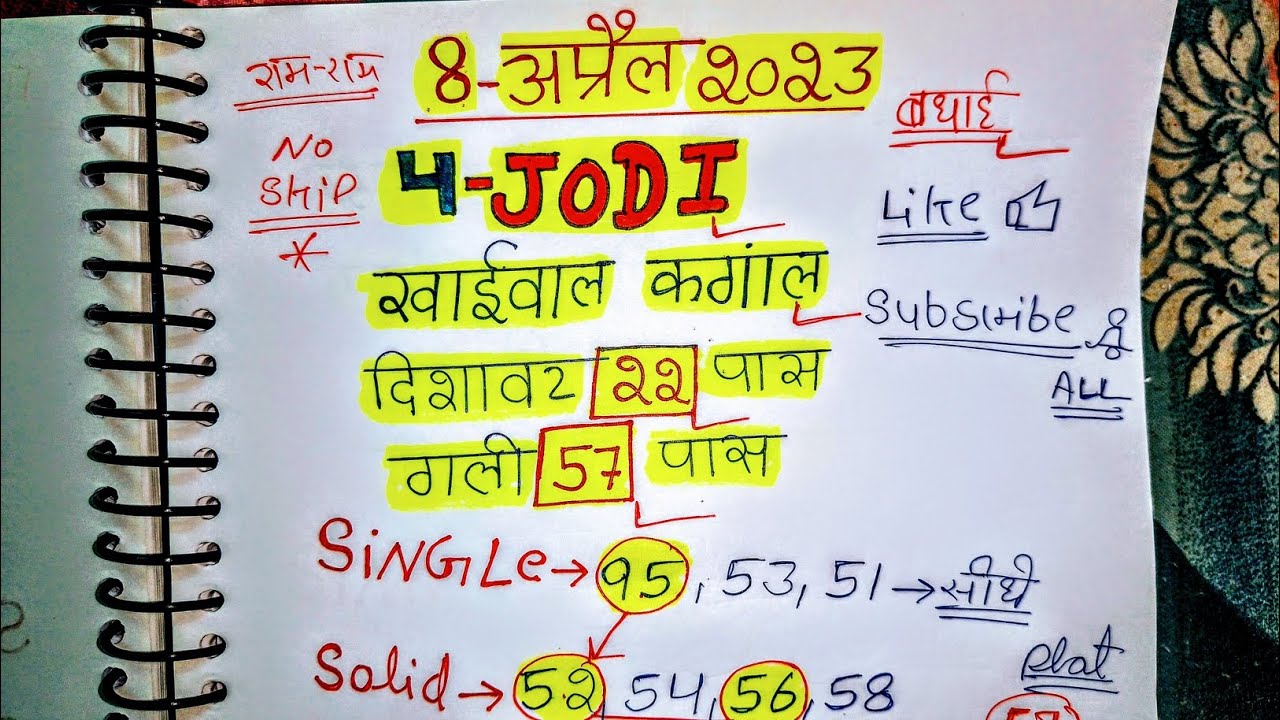 राम-राम
8-अप्रैल २०२३
बधाई
NO
SKiP
4-JODI
Like
खाईवाल कगांल
Subscribe
ALL
दिशावर २२ पास
गली 57 पास
SiNGLe→ 95, 53, 51→सीधे
Solid→ 5२, 54, 56, 58